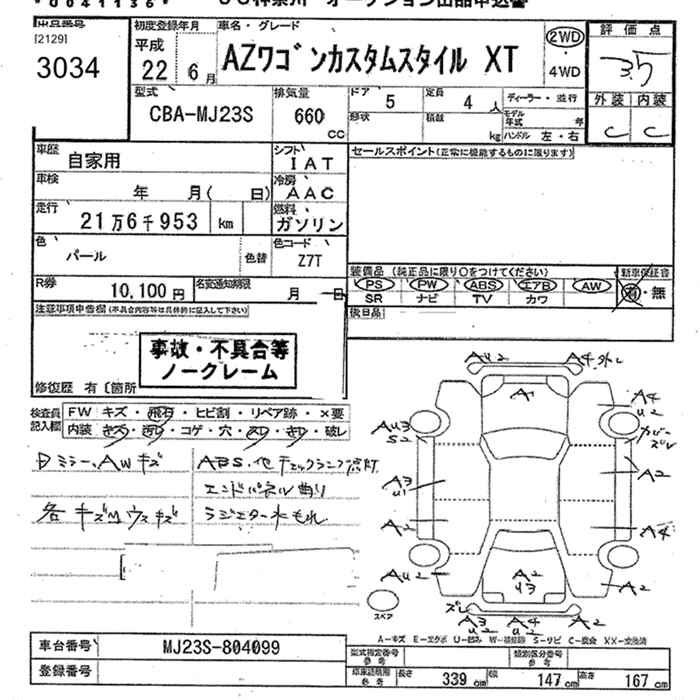 [2129]
3034
初度登録年月
平成
22 6月
車名・グレード
AZワゴンカスタムスタイル XT
2WD
4WD
評価点
3.5
外装 内装
C C
型式
CBA-MJ23S
排気量
660
CC
ドア
5
定員
4 人
ディーラー・並行
形状
積載
kg
モデル年式
年
ハンドル 左・右
車歴
自家用
シフト
IAT
セールスポイント(正常に機能するものに限ります)
車検
年 月( 日)
冷房
AAC
走行
21万6千953 km
燃料
ガソリン
色
パール
色替
色コード
Z7T
R券
10,100円
名変通知期限
月 日
装備品 (純正品に限り○をつけてください)
新車保証書
PS PW ABS エアB AW
有・無
SR ナビ TV カワ
後日品
注意事項申告欄(不具合内容等は具体的に記入して下さい)
事故・不具合等
ノークレーム
修復歴 有〔箇所
検査員
記入欄
FW キズ・飛石・ヒビ割・リペア跡・×要
内装
コゲ・穴
破レ
ミラー、AWキズ
ABS、他チェックランプ点灯
エンドパネル曲り
各キズ
ラジエター水もれ
AU2
A4
A1
A4
U2
AU3
S2
カバー
ズレ
A3
U1
A2
A2
A4
AU2
A2
U3
A2
ズレ
A3
U2
A4
U2
スペア
A-キズ E-エクボ U-凹み W-補修跡 S-サビ C-腐食 XX-交換済
車台番号
MJ23S-804099
登録番号
型式指定番号
参考
類別区分番号
参考
車庫証明用
参考
長さ 339 cm 幅 147 cm 高さ 167 cm